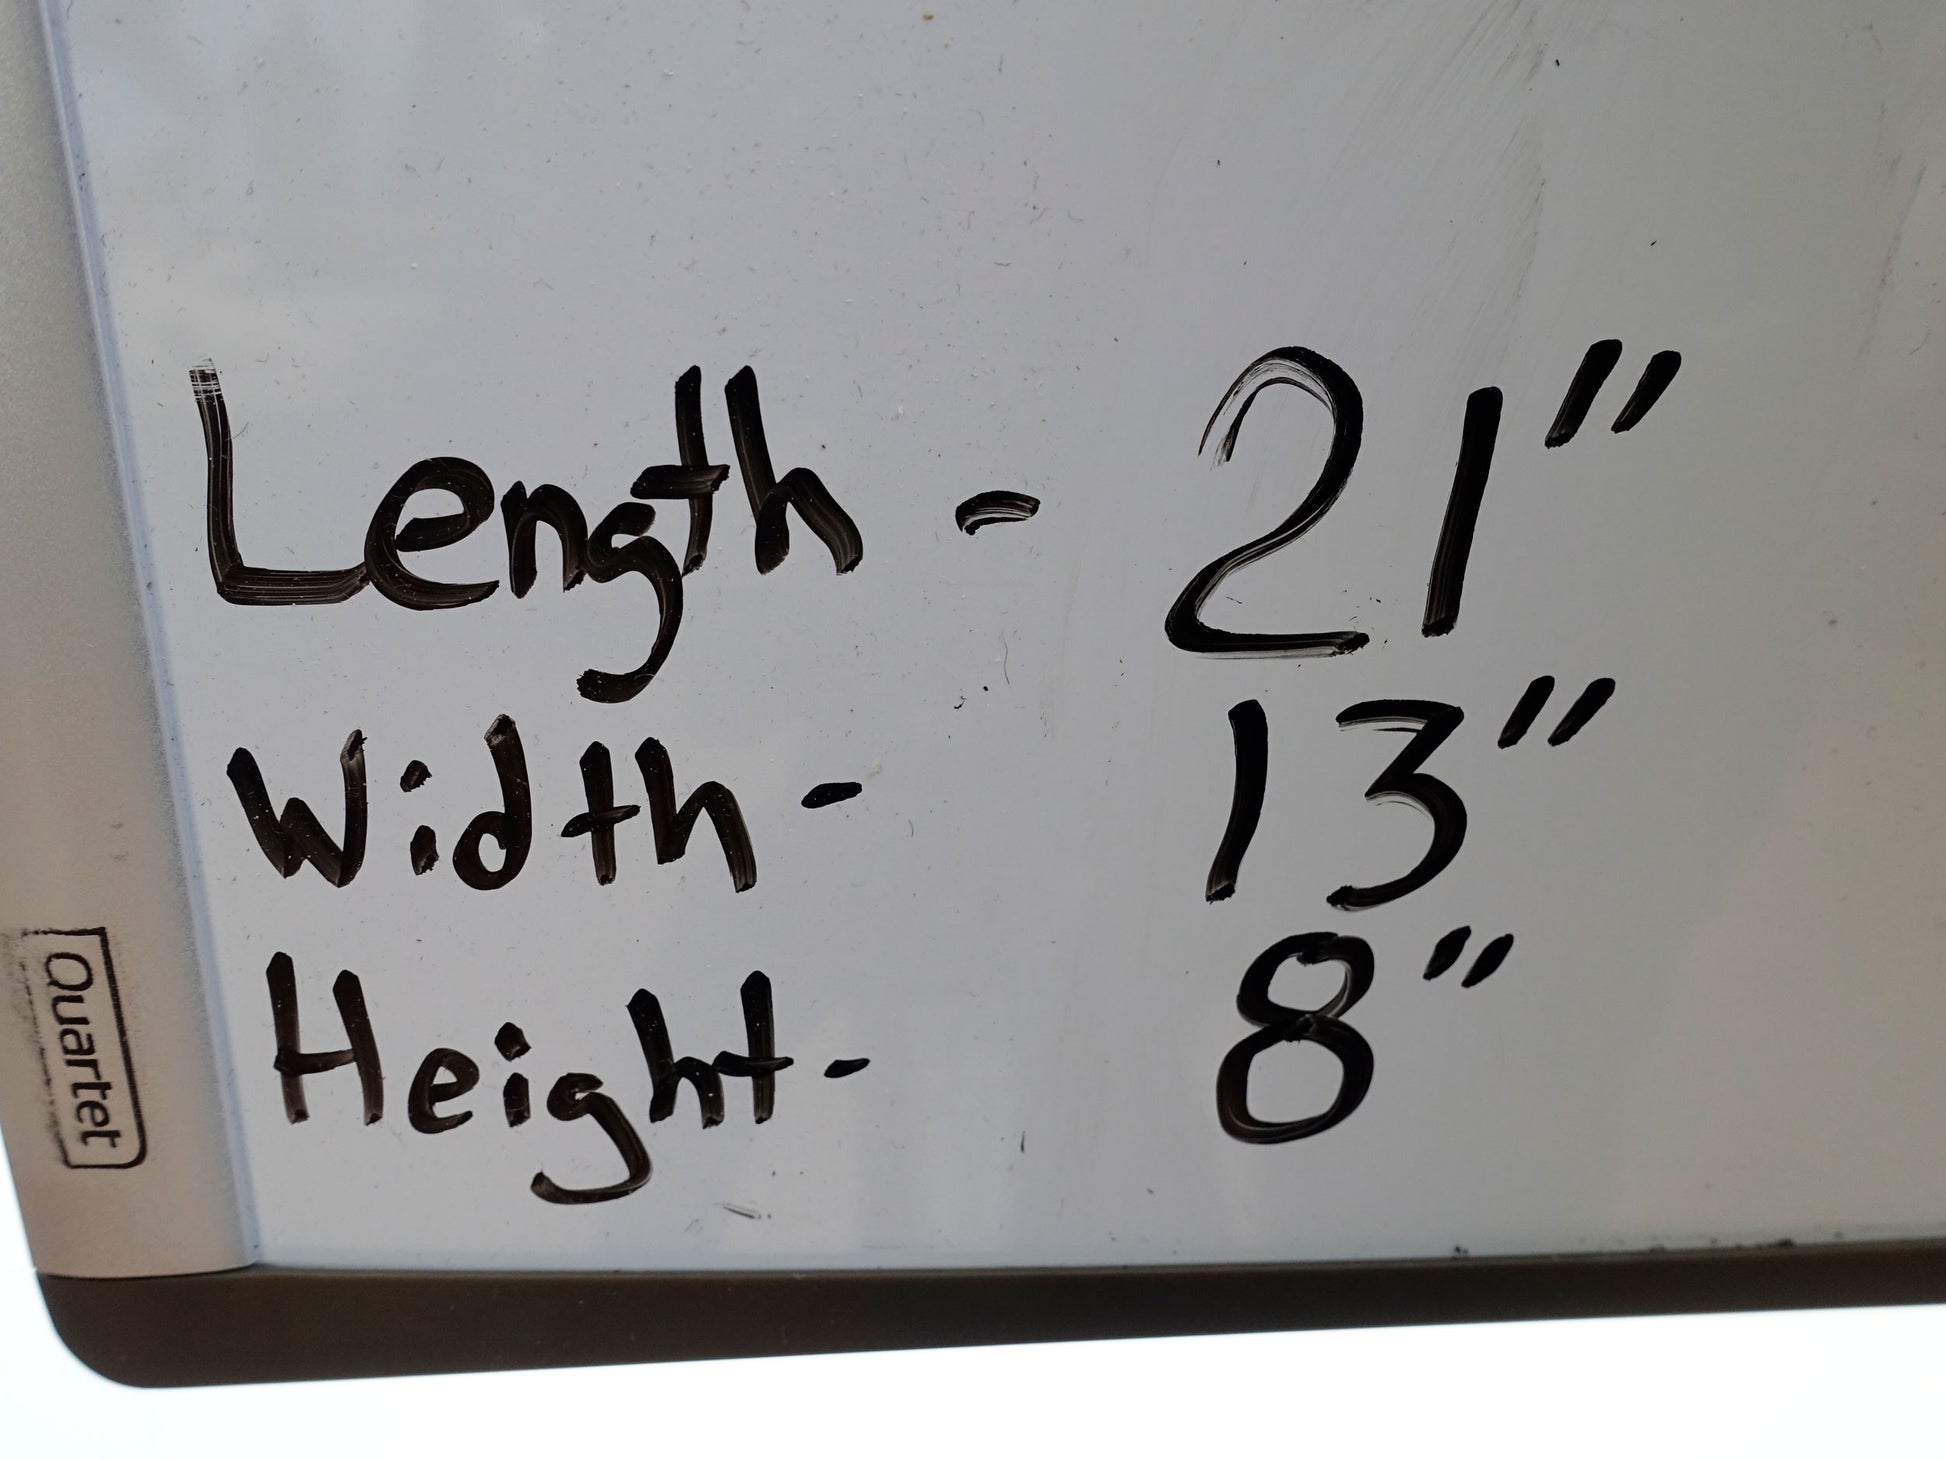 Length - 21"
Width - 13"
Height - 8"
Quartet